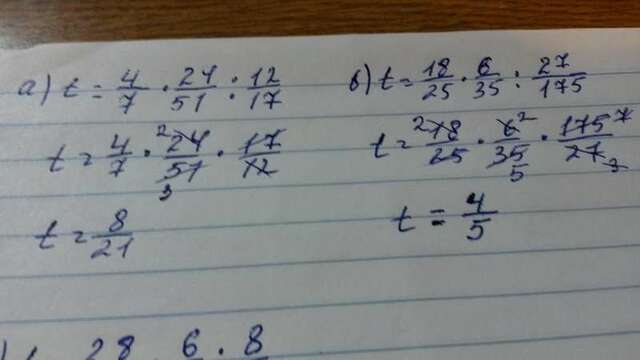 a) t = 4/7 · 24/51 : 12/17
t = 4/7 · 2 24/51 3 · 17/12
t = 8/21
b) t = 18/25 · 6/35 : 27/175
t = 2 18/25 · 6 2/35 5 · 175 7/27 3
t = 4/5
28 · 6 · 8